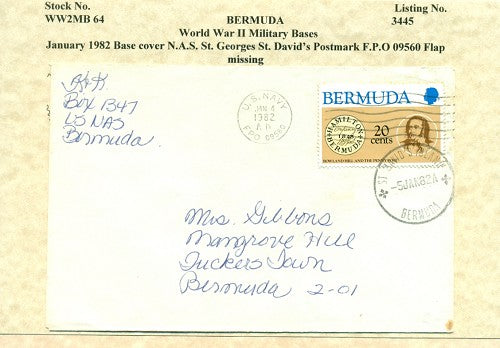 Stock No.
WW2MB 64
BERMUDA
Listing No.
3445
World War II Military Bases
January 1982 Base cover N.A.S. St. Georges St. David's Postmark F.P.O 09560 Flap
missing
Box 1347
US NAS
Bermuda
U.S. NAVY
JAN 4
1982
BERMUDA
HAMILTON
BERMUDA
20
cents
ROWLAND HILL AND THE PENNY
-5JAN82A
BERMUDA
Mrs. Gibbons
Mangrove Hill
Tuckers Town
Bermuda 2-01